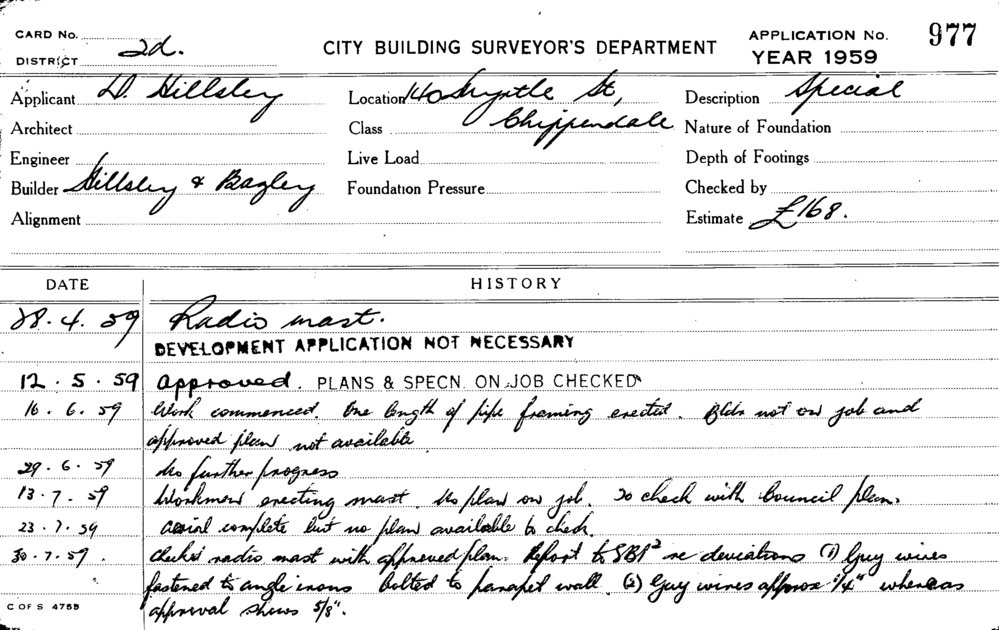 CARD No.
DISTRICT 2d.
CITY BUILDING SURVEYOR'S DEPARTMENT
APPLICATION No. 977
YEAR 1959
Applicant D. Hillsley
Location 140 Myrtle St,
Description Special
Architect
Class Chippendale
Nature of Foundation
Engineer
Live Load
Depth of Footings
Builder Hillsley & Bagley
Foundation Pressure
Checked by
Alignment
Estimate £168.
DATE HISTORY
28.4.59 Radio mast.
DEVELOPMENT APPLICATION NOT NECESSARY
12.5.59 approved. PLANS & SPECN. ON JOB CHECKED
16.6.59 Work commenced. One length of pipe framing erected. Bldr not on job and
approved plan not available
29.6.59 No further progress
13.7.59 Workmen erecting mast. No plan on job. To check with Council plan.
23.7.59 Aerial complete but no plan available to check.
30.7.59. Checked radio mast with approved plan. Report to re deviations (1) Guy wires
fastened to angle irons bolted to parapet wall. (2) Guy wires approx 1/4" whereas
approval shews 5/8".
C OF S 4755